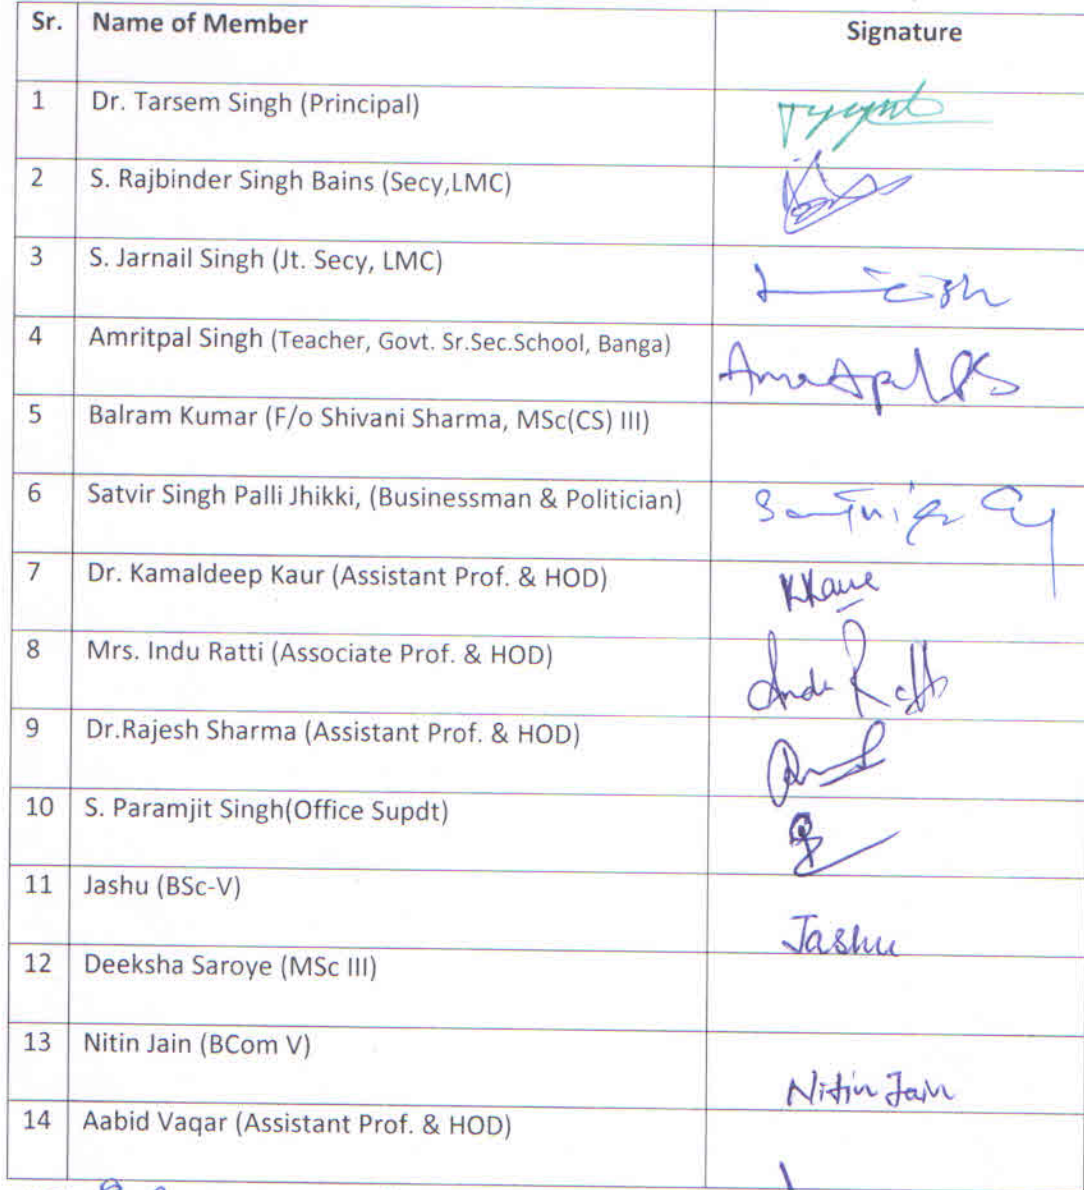 Sr. Name of Member Signature
1 Dr. Tarsem Singh (Principal)
2 S. Rajbinder Singh Bains (Secy,LMC)
3 S. Jarnail Singh (Jt. Secy, LMC)
4 Amritpal Singh (Teacher, Govt. Sr.Sec.School, Banga)
5 Balram Kumar (F/o Shivani Sharma, MSc(CS) III)
6 Satvir Singh Palli Jhikki, (Businessman & Politician)
7 Dr. Kamaldeep Kaur (Assistant Prof. & HOD)
8 Mrs. Indu Ratti (Associate Prof. & HOD)
9 Dr.Rajesh Sharma (Assistant Prof. & HOD)
10 S. Paramjit Singh(Office Supdt)
11 Jashu (BSc-V) Jashu
12 Deeksha Saroye (MSc III)
13 Nitin Jain (BCom V) Nitin Jain
14 Aabid Vaqar (Assistant Prof. & HOD)